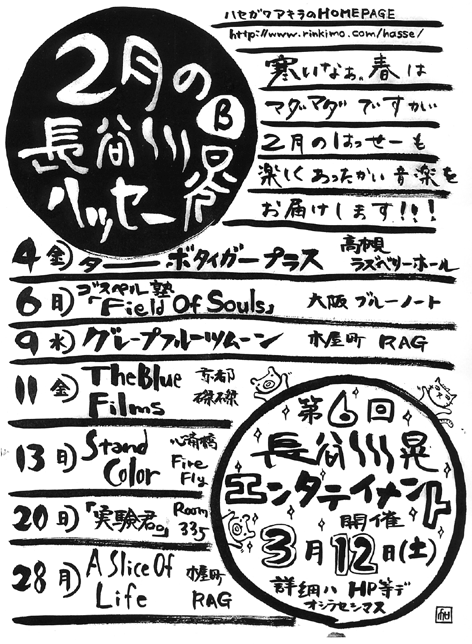 ハセガワアキラのHOMEPAGE
http://www.rinkimo.com/hasse/
2月の
長谷川晃
ハッセーB
寒いなぁ。春は
マダマダですがい
2月のはっせーも
楽しくあったかい音楽を
お届けします!!!
4金 ターボタイガープラス 高槻ラズベリーホール
6日 ゴスペル塾「Field Of Souls」 大阪ブルーノート
9水 グレープフルーツムーン 木屋町 RAG
11金 The Blue Films 京都 磔磔
13日 Stand Color 心斎橋 Fire Fly
20日 「実験君。」 Room 335
28月 A Slice Of Life 木屋町 RAG
第6回
長谷川晃
エンタテイメント
開催
3月12日(土)
詳細ハHP等デ
オシラセシマス